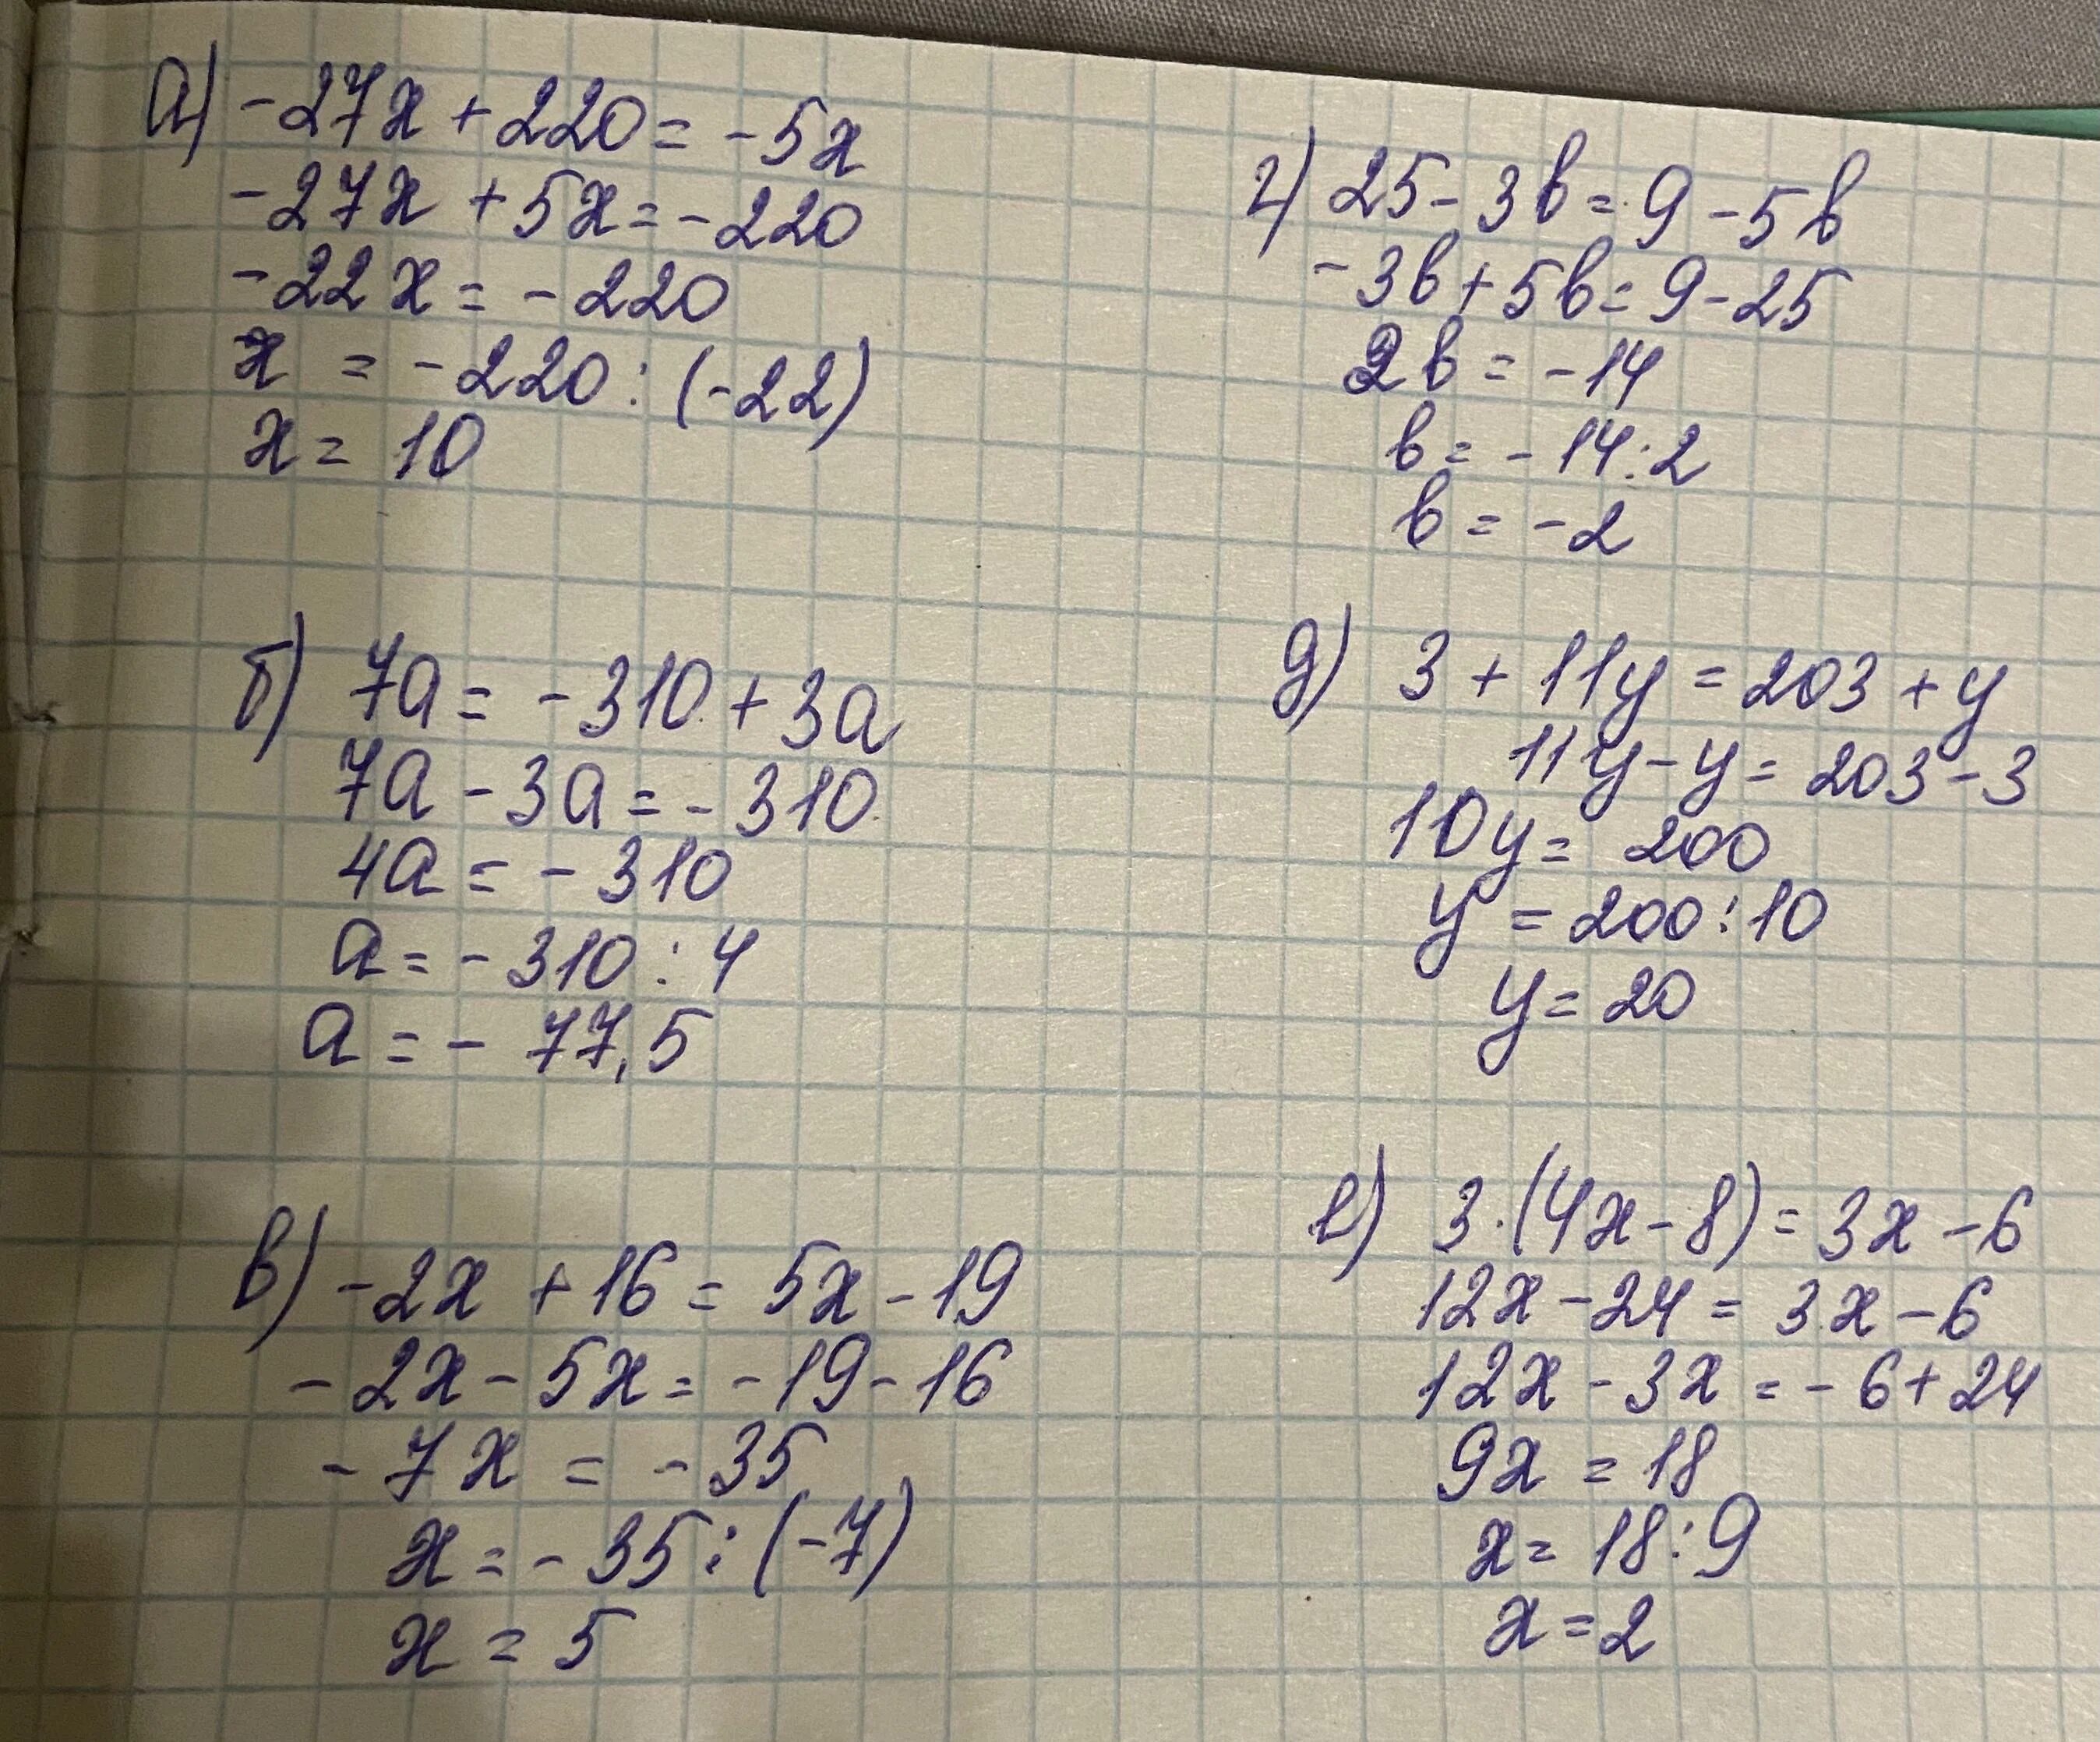 а) -27x + 220 = -5x
-27x + 5x = -220
-22x = -220
x = -220 : (-22)
x = 10
б) 7a = -310 + 3a
7a - 3a = -310
4a = -310
a = -310 : 4
a = - 77,5
в) -2x + 16 = 5x - 19
-2x - 5x = -19 - 16
-7x = -35
x = -35 : (-7)
x = 5
г) 25 - 3b = 9 - 5b
-3b + 5b = 9 - 25
2b = -14
b = -14 : 2
b = -2
д) 3 + 11y = 203 + y
11y - y = 203 - 3
10y = 200
y = 200 : 10
y = 20
е) 3 · (4x - 8) = 3x - 6
12x - 24 = 3x - 6
12x - 3x = -6 + 24
9x = 18
x = 18 : 9
x = 2